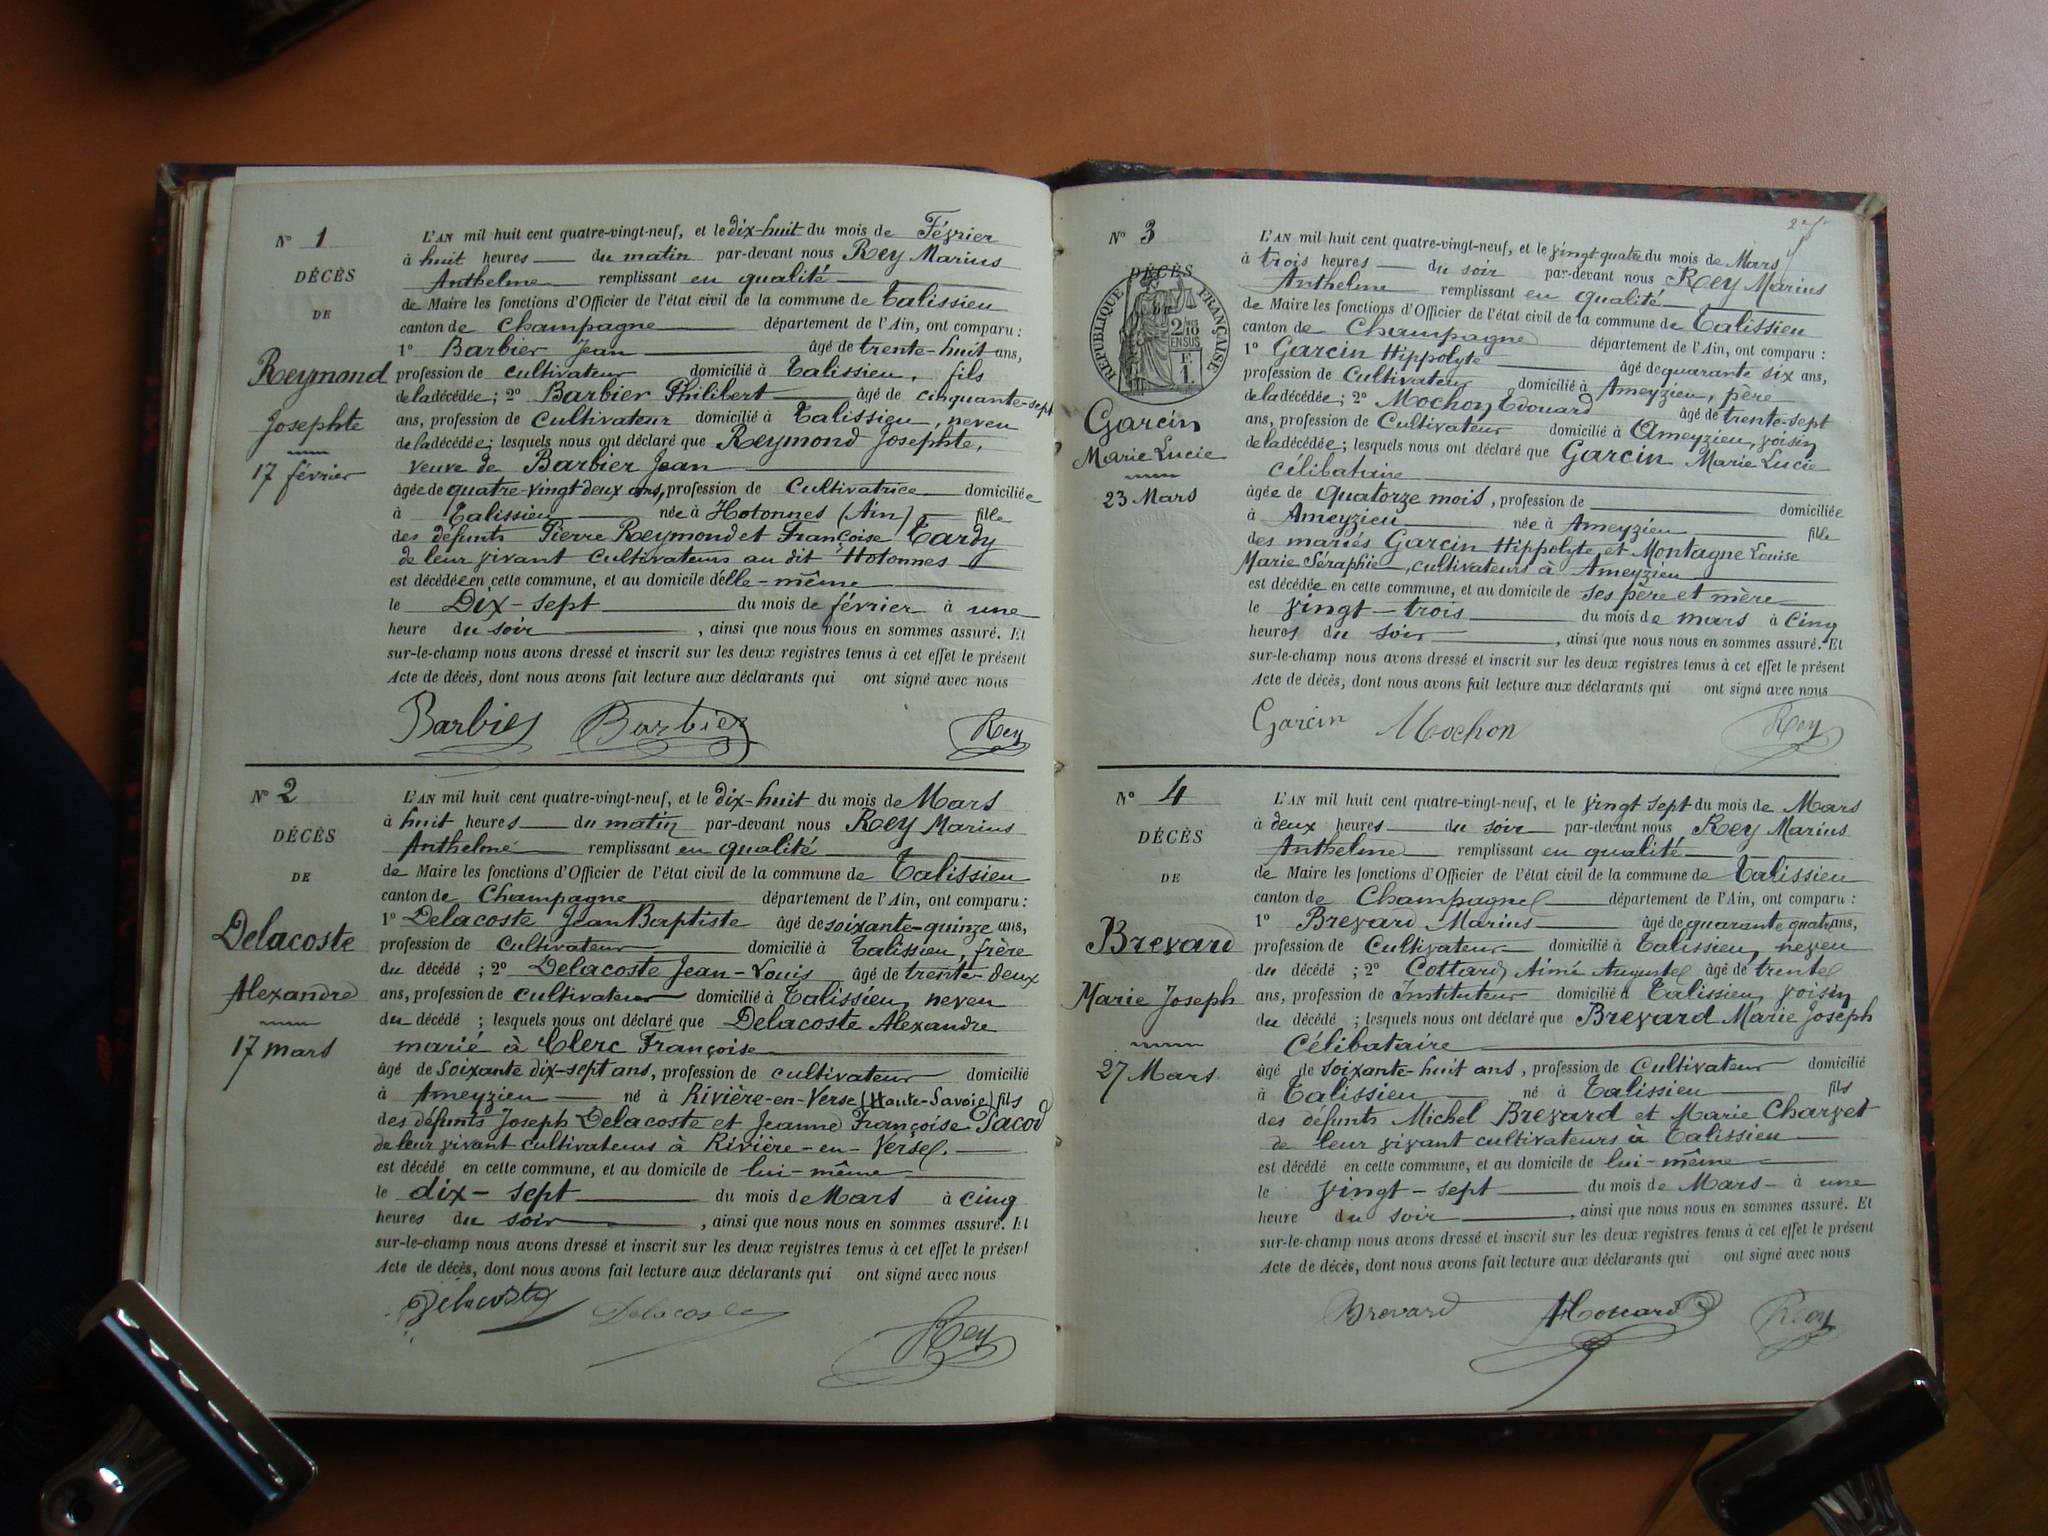 N° 1
DÉCÈS
DE
Reymond
Josephte
17 février
L'AN mil huit cent quatre-vingt-neuf, et le dix-huit du mois de Février
à huit heures du matin par-devant nous Rey Marius
Anthelme remplissant en qualité
de Maire les fonctions d'Officier de l'état civil de la commune de Talissieu
canton de Champagne département de l'Ain, ont comparu :
1° Barbier Jean âgé de trente-huit ans,
profession de cultivateur domicilié à Talissieu, fils
de la décédée ; 2° Barbier Philibert âgé de cinquante-sept
ans, profession de cultivateur domicilié à Talissieu, neveu
de la décédée ; lesquels nous ont déclaré que Reymond Josephte,
veuve de Barbier Jean
âgée de quatre-vingt-deux ans, profession de Cultivatrice domiciliée
à Talissieu née à Hotonnes (Ain) fille
des défunts Pierre Reymond et Françoise Tardy
de leur vivant cultivateurs au dit Hotonnes
est décédée en cette commune, et au domicile d'elle-même
le Dix-sept du mois de février à une
heure du soir, ainsi que nous nous en sommes assuré. Et
sur-le-champ nous avons dressé et inscrit sur les deux registres tenus à cet effet le présent
Acte de décès, dont nous avons fait lecture aux déclarants qui ont signé avec nous
Barbier Barbier Rey
N° 2
DÉCÈS
DE
Delacoste
Alexandre
17 mars
L'AN mil huit cent quatre-vingt-neuf, et le dix-huit du mois de Mars
à huit heures du matin par-devant nous Rey Marius
Anthelme remplissant en qualité
de Maire les fonctions d'Officier de l'état civil de la commune de Talissieu
canton de Champagne département de l'Ain, ont comparu :
1° Delacoste Jean Baptiste âgé de soixante-quinze ans,
profession de cultivateur domicilié à Talissieu, frère
du décédé ; 2° Delacoste Jean-Louis âgé de trente-deux
ans, profession de cultivateur domicilié à Talissieu, neveu
du décédé ; lesquels nous ont déclaré que Delacoste Alexandre
marié à Clerc Françoise
âgé de Soixante dix-sept ans, profession de cultivateur domicilié
à Ameyzieu né à Rivière-en-Verse (Haute-Savoie) fils
des défunts Joseph Delacoste et Jeanne Françoise Pacod
de leur vivant cultivateurs à Rivière-en-Verse.
est décédé en cette commune, et au domicile de lui-même
le dix-sept du mois de Mars à cinq
heures du soir, ainsi que nous nous en sommes assuré. Et
sur-le-champ nous avons dressé et inscrit sur les deux registres tenus à cet effet le présent
Acte de décès, dont nous avons fait lecture aux déclarants qui ont signé avec nous
Delacoste Delacoste Rey
N° 3
DÉCÈS
DE
RÉPUBLIQUE FRANÇAISE
EN SUS
Garcin
Marie Lucie
23 Mars
L'AN mil huit cent quatre-vingt-neuf, et le vingt-quatre du mois de Mars
à trois heures du soir par-devant nous Rey Marius
Anthelme remplissant en qualité
de Maire les fonctions d'Officier de l'état civil de la commune de Talissieu
canton de Champagne département de l'Ain, ont comparu :
1° Garcin Hippolyte âgé de quarante six ans,
profession de Cultivateur domicilié à Ameyzieu, père
de la décédée ; 2° Mochon Edouard âgé de trente-sept
ans, profession de Cultivateur domicilié à Ameyzieu, voisin
de la décédée ; lesquels nous ont déclaré que Garcin Marie Lucie
célibataire
âgée de quatorze mois, profession de domiciliée
à Ameyzieu née à Ameyzieu fille
des mariés Garcin Hippolyte et Montagne Louise
Marie Séraphie, cultivateurs à Ameyzieu
est décédée en cette commune, et au domicile de ses père et mère
le vingt-trois du mois de mars à cinq
heures du soir, ainsi que nous nous en sommes assuré. Et
sur-le-champ nous avons dressé et inscrit sur les deux registres tenus à cet effet le présent
Acte de décès, dont nous avons fait lecture aux déclarants qui ont signé avec nous
Garcin Mochon Rey
N° 4
DÉCÈS
DE
Brevard
Marie Joseph
27 Mars
L'AN mil huit cent quatre-vingt-neuf, et le vingt sept du mois de Mars
à deux heures du soir par-devant nous Rey Marius
Anthelme remplissant en qualité
de Maire les fonctions d'Officier de l'état civil de la commune de Talissieu
canton de Champagne département de l'Ain, ont comparu :
1° Brevard Marius âgé de quarante quatre ans,
profession de Cultivateur domicilié à Talissieu, neveu
du décédé ; 2° Cottard Aimé Auguste âgé de trente
ans, profession de Instituteur domicilié à Talissieu, voisin
du décédé ; lesquels nous ont déclaré que Brevard Marie Joseph
Célibataire
âgé de soixante-huit ans, profession de Cultivateur domicilié
à Talissieu né à Talissieu fils
des défunts Michel Brevard et Marie Charvet
de leur vivant cultivateurs à Talissieu
est décédé en cette commune, et au domicile de lui-même
le vingt-sept du mois de Mars à une
heure du soir, ainsi que nous nous en sommes assuré. Et
sur-le-champ nous avons dressé et inscrit sur les deux registres tenus à cet effet le présent
Acte de décès, dont nous avons fait lecture aux déclarants qui ont signé avec nous
Brevard Rey